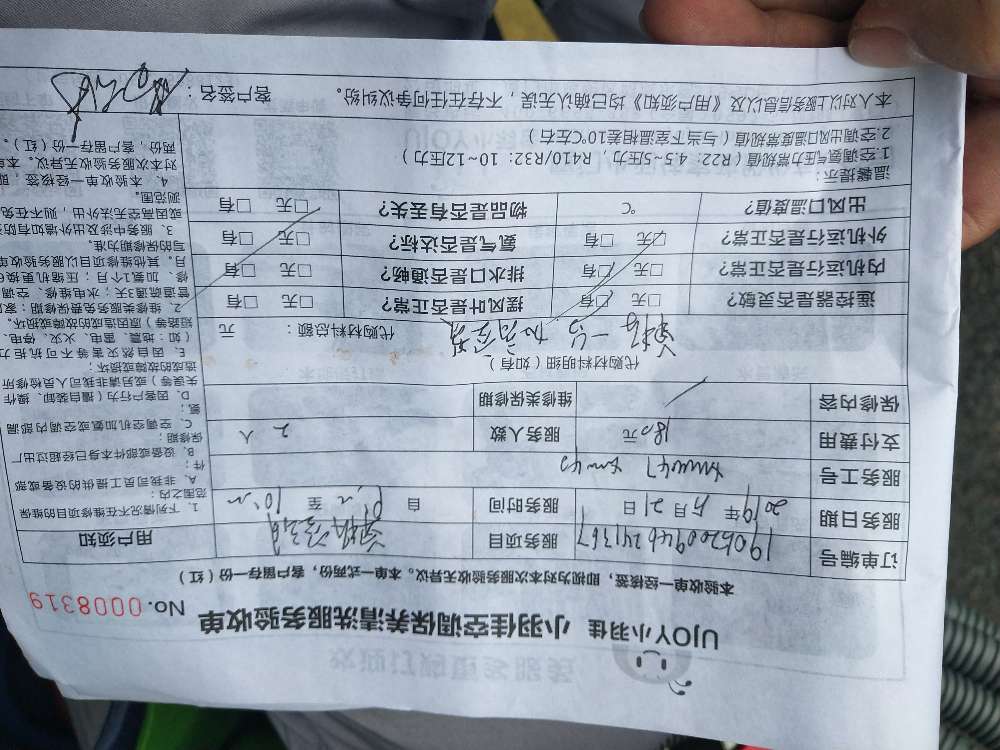 UJOY小羽佳 小羽佳空调保养清洗服务验收单 No. 0008319
本验收单一经接签，即视为对本次服务验收无异议。本单一式两份，客户留存一份（红）
订单编号 服务项目 用户须知
服务日期 2019年 5月21日 服务时间 自 至
服务工号
支付费用 180元 服务人数 2人
保修内容 维修类保修期
代购材料明细（如有）
代购材料总额： 元
遥控器是否灵敏？ □无 □有 摆风叶是否正常？ □无 □有
内机运行是否正常？ □无 □有 排水口是否通畅？ □无 □有
外机运行是否正常？ □无 □有 氨气是否达标？ □无 □有
出风口温度值？ ℃ 物品是否有丢失？ □无 □有
温馨提示：
1.空调氨气压力常规值（R22：4.5~5压力，R410/R32：10~12压力）
2.空调出风口温度常规值（与当下室温相差10℃左右）
本人对以上服务信息以及《用户须知》均已确认无误，不存在任何争议纠纷。 客户签名：
1、下列情况不在维修项目的维保
范围之内：
A、非我司员工提供的设备或部
件；
B、设备或部件本身已经超过出厂
保修期；
C、空调空机加氨或空调内部漏
氨；
D、因客户行为（擅自装卸、操作
失误等）或另请非我司人员检修所
造成的故障或损坏；
E、因自然灾害等不可抗拒力
（如：地震、雷电、火灾、停电、
短路等）原因造成的故障或损坏。
2、维修类服务免费保修期：家
管道疏通3天；水电维修、空调
修、加氨1个月；压缩机更换
月；其他维修项目以服务验收单
写的保修期为准。
3、服务中涉及出外墙如有防
或因高空无法外出，则不在免
测范围。
4、本验收单一经接签，即
对本次服务验收无异议。本单
两份，客户留存一份（红）。